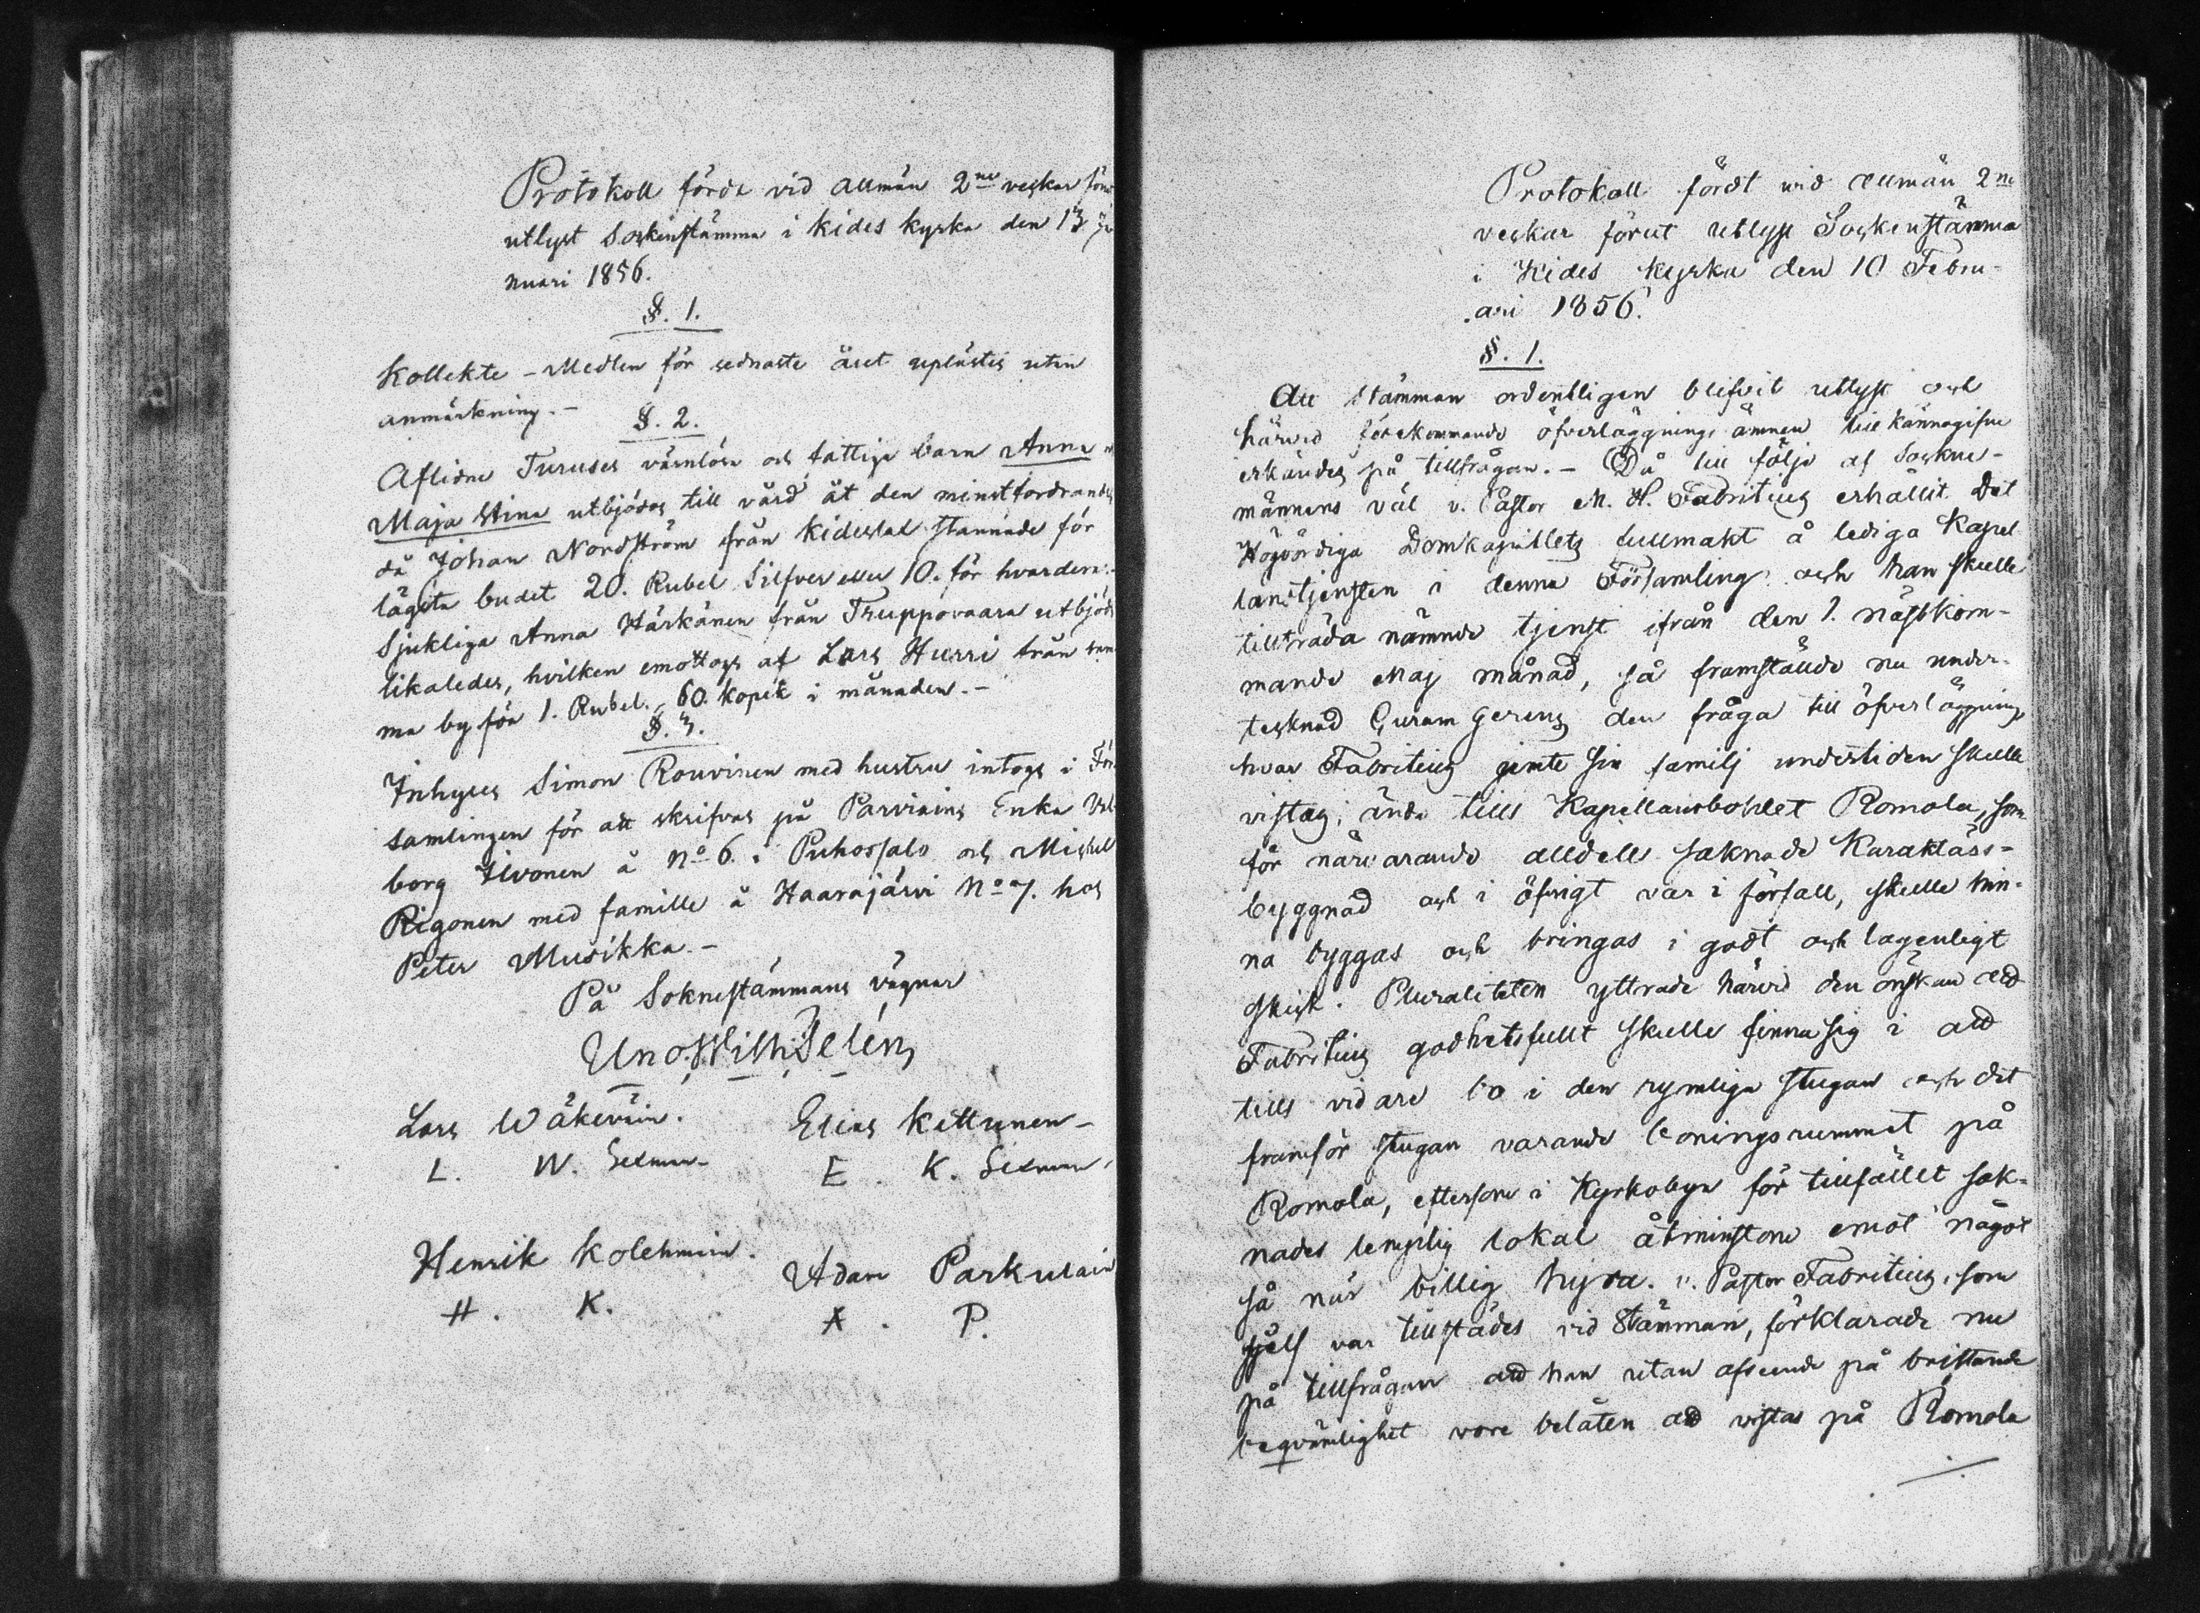 Protokoll fördt vid allmän 2ne veckor föru
utlyst Sockenstämma i Kides kyrka den 13 Ja
nuari 1856.
§. 1.
Kollekte-Medlen för sednaste året uplästes utan
anmärkning. –
§. 2.
Aflidne Turuses värnlösa och fattiga barn Anna
Maja Stina utbjödos till vård åt den minstfordrande,
då Johan Nordström från Kideslal stannade för
lägsta budet 20. Rubel Silfver eller 10. för hvardera.
Sjukliga Anna Härkönen från Truppovaara utbjöds
likaledes, hvilken emottogs af Lars Hurri från sam
ma by för 1. Rubel. 60. kopek i månaden. –
§. 3.
Inhyses Simon Rouvinen med hustru intogs i För
samlingen för att skrifvas på Parviains Enka Val
borg Ilvonen å No 6. i Puhossalo och Michel
Rigonen med famille å Haarajärvi No 7. hos
Peter Musikka. –
På Soknestämmans vägnar
Uno Wilh: Telén
Lars Wäkeväin. Elias Kettunen –
L. W. Sexman E. K. Sexman,
Henrik Kolehmain. Adam Parkulain
H. K. A. P.
Protokoll fördt wid allmän 2ne
veckor förut utlyst Sockenstämma
i Kides kyrka den 10 Febru-
ari 1856.
§. 1.
Att Stämman ordentligen blifvit utlyst och
härvid förekommande öfverläggnings ämnen till kännagifne
erkändes på tillfrågan. – Då till följe af Sockne-
männens väl v. Pastor M. H. Fabritius erhållit Det
Högvördiga Domkapitlets fullmakt å lediga Kapel
lanstjensten i denna Församling och han skulle
tillträda nämnde tjenst ifrån den 1. nästkom-
mande Maj månad, så framstälde nu under-
tecknad Guram Gerens den fråga till öfverläggning,
hvar Fabritius jemte sin familj undertiden skulle
vistas, ända tills Kapellansbohlet Romola, som
för närvarande alldels saknade Karaktärs-
byggnad och i öfrigt var i förfall, skulle hin-
na byggas och bringas i godt och lagenligt
skick. Pluraliteten yttrade härvid den önskan att
Fabritius godhetsfullt skulle finna sig i att
tills vidare bo i den rymliga stugan och det
framför stugan varande boningsrummet på
Romola, eftersom i Kyrkobyn för tillfället sak-
nades lemplig lokal åtminstone emot något
så när billig hyra. v. Pastor Fabritius, som
sjelf var tillstädes vid Stämman, förklarade nu
på tillfrågan att han utan afseende på bristande
beqvämlighet vore belåten att vistas på Romola